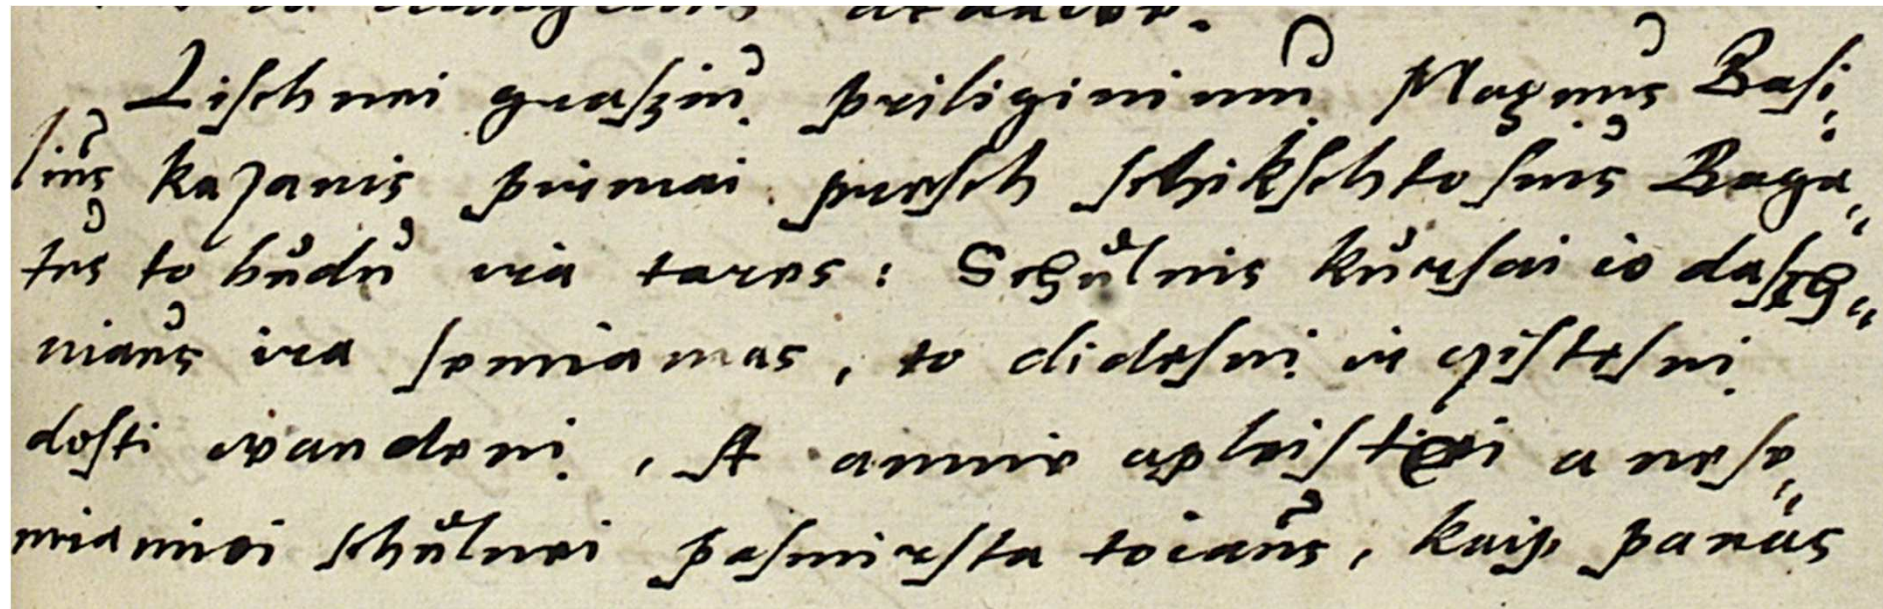 Lischnei graſʒiu priliginimu Magnus Baſi,
lius kaʒanis pirmai preſch ſchikſchtoſius Baga„
tus to budu ira tares: Schůlnis kůrſai io daſch„
niaus ira ſemiamas, to dideſni ir cʒiſteſni
doſti wandeni, A annie apleiſtiei a neſe„
miamiei ſchůlnei paſmirſta toiaus, kaip panas